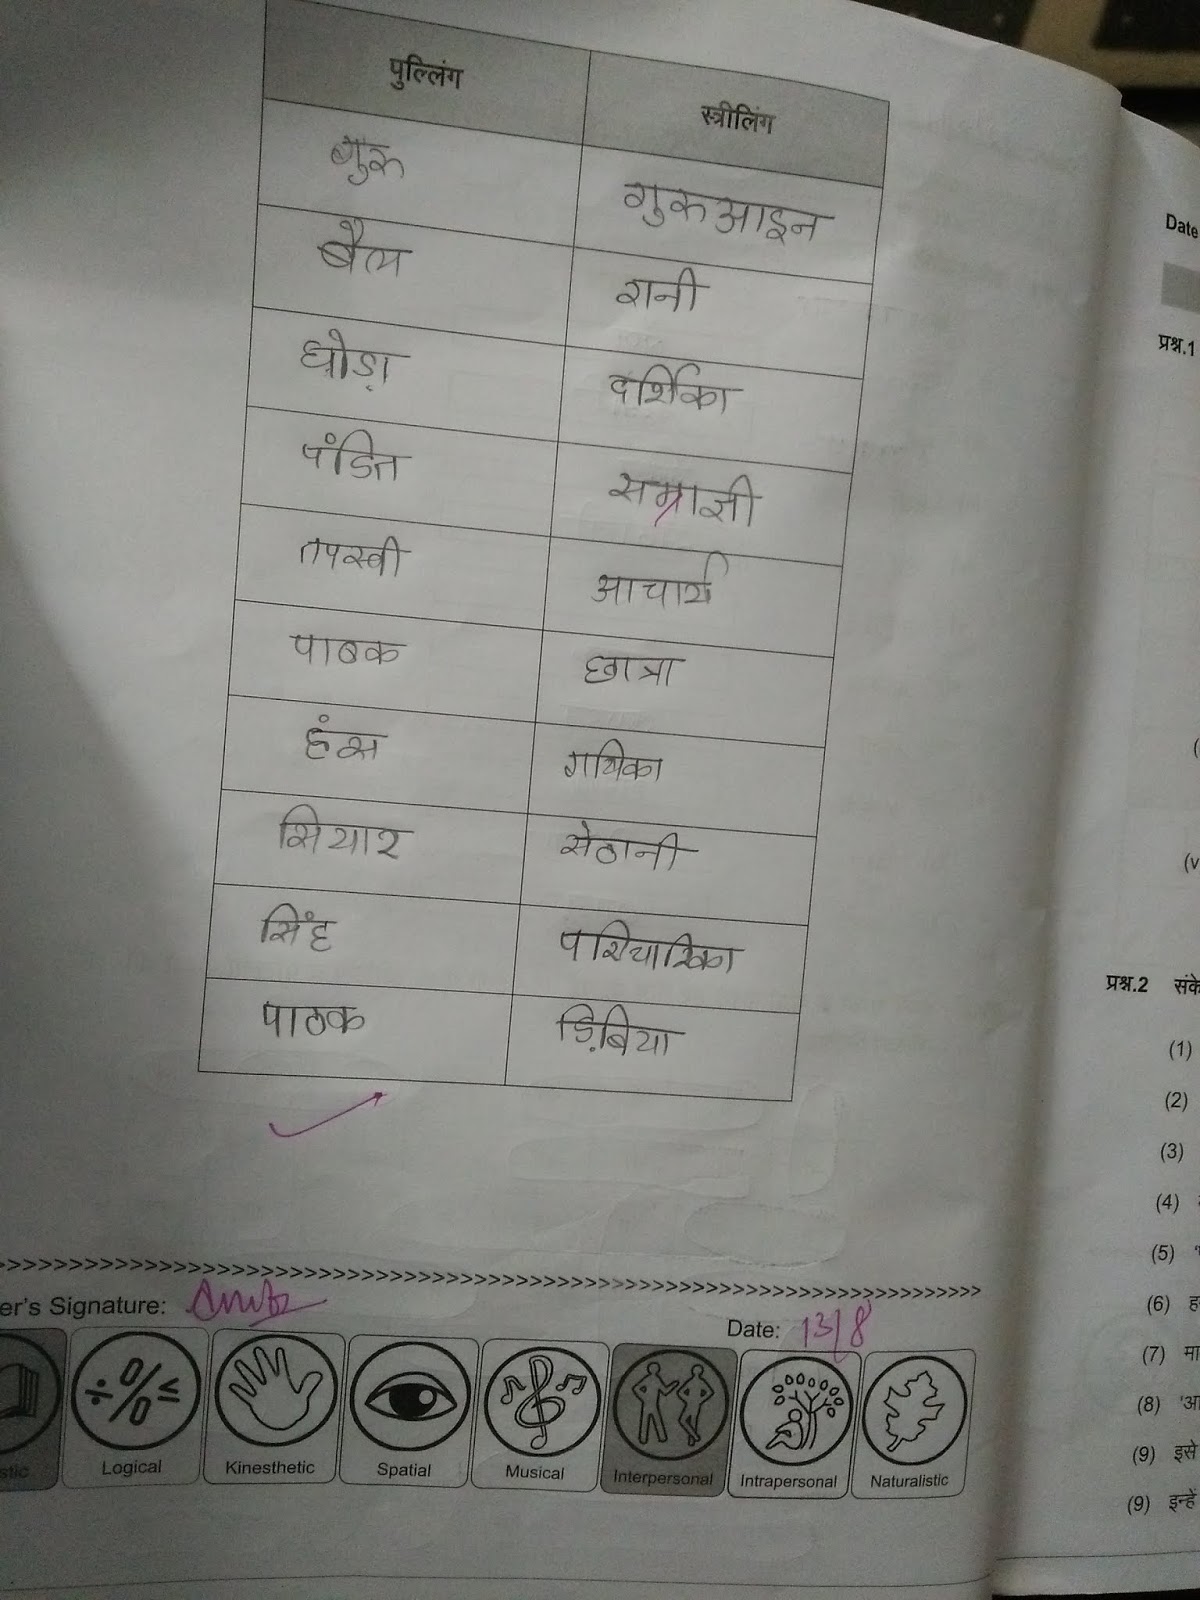 पुल्लिंग स्त्रीलिंग
गुरु गुरुआइन
बैल रानी
घोड़ा दर्शिका
पंडित सम्राज्ञी
तपस्वी आचार्य
पाठक छात्रा
हंस गायिका
सियार सेठानी
सिंह परिचारिका
पाठक डि़बिया
er's Signature:
Date: 13/8
stic Logical Kinesthetic Spatial Musical Interpersonal Intrapersonal Naturalistic
Date
प्रश्न.1
(
(v
प्रश्न.2 संके
(1)
(2)
(3)
(4)
(5)
(6) ह
(7) मा
(8) 'आ
(9) इसे
(9) इन्हें